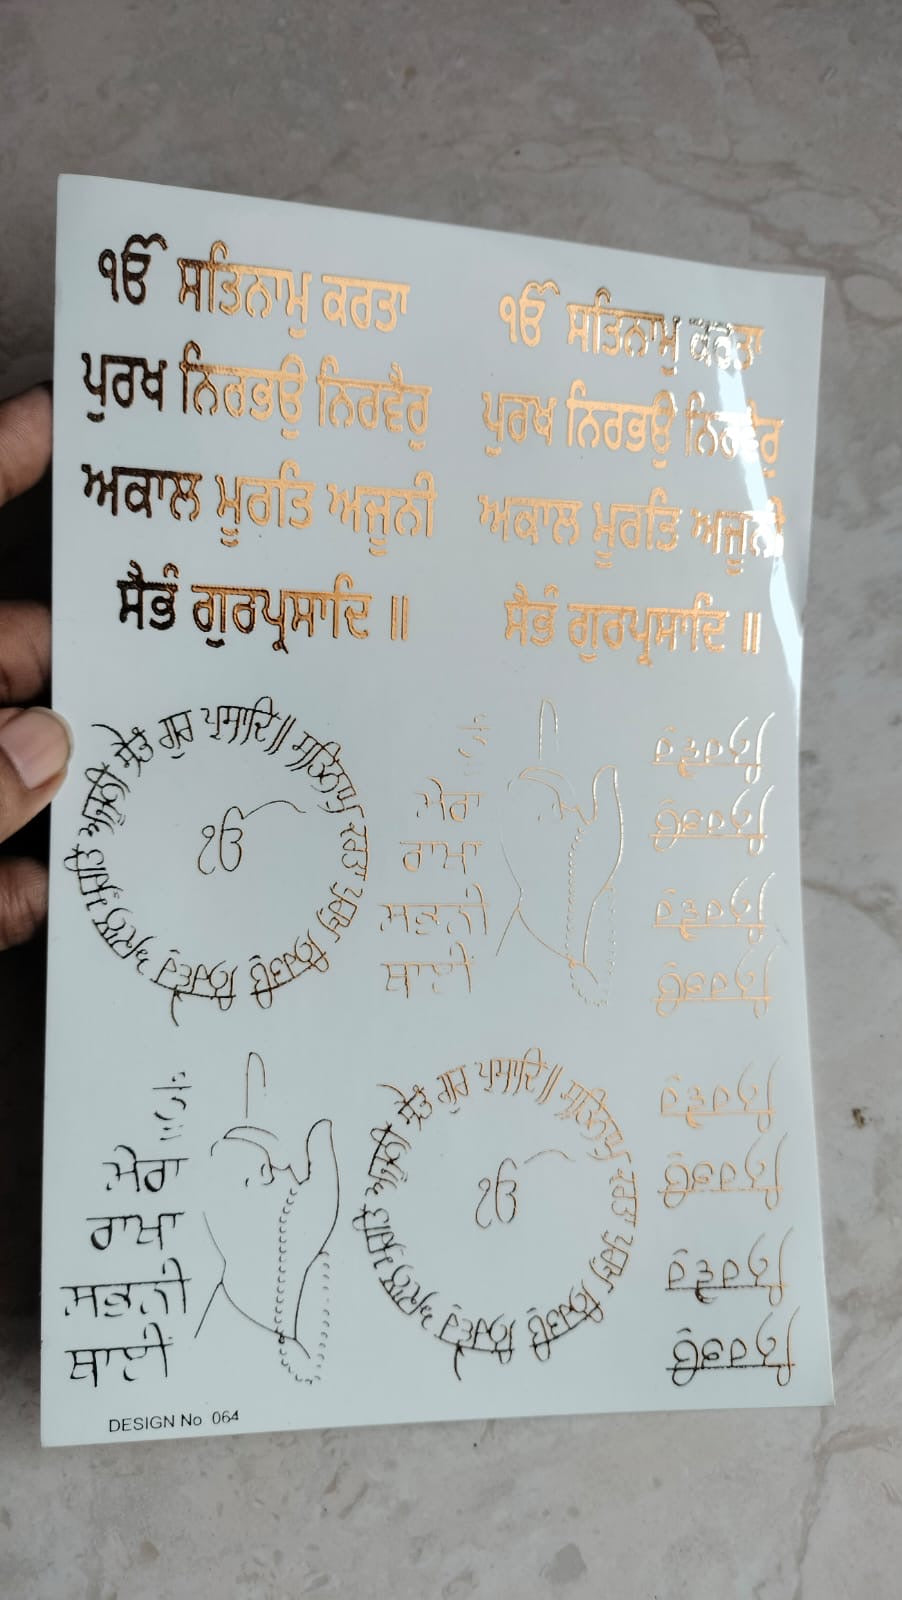 ੴ ਸਤਿਨਾਮੁ ਕਰਤਾ
ਪੁਰਖ ਨਿਰਭਉ ਨਿਰਵੈਰੁ
ਅਕਾਲ ਮੂਰਤਿ ਅਜੂਨੀ
ਸੈਭੰ ਗੁਰਪ੍ਰਸਾਦਿ ॥
ੴ ਸਤਿਨਾਮੁ ਕਰਤਾ
ਪੁਰਖ ਨਿਰਭਉ ਨਿਰਵੈਰੁ
ਅਕਾਲ ਮੂਰਤਿ ਅਜੂਨੀ
ਸੈਭੰ ਗੁਰਪ੍ਰਸਾਦਿ ॥
ਸਤਿਨਾਮੁ ਕਰਤਾ ਪੁਰਖੁ ਨਿਰਭਉ ਨਿਰਵੈਰੁ ਅਕਾਲ ਮੂਰਤਿ ਅਜੂਨੀ ਸੈਭੰ ਗੁਰ ਪ੍ਰਸਾਦਿ॥
ੴ
ਮੇਰਾ
ਰਾਖਾ
ਸਭਨੀ
ਥਾਈਂ
ਨਿਰਵੈਰੁ
ਨਿਰਭਉ
ਨਿਰਵੈਰੁ
ਨਿਰਭਉ
ਮੇਰਾ
ਰਾਖਾ
ਸਭਨੀ
ਥਾਈਂ
ਸਤਿਨਾਮੁ ਕਰਤਾ ਪੁਰਖੁ ਨਿਰਭਉ ਨਿਰਵੈਰੁ ਅਕਾਲ ਮੂਰਤਿ ਅਜੂਨੀ ਸੈਭੰ ਗੁਰ ਪ੍ਰਸਾਦਿ॥
ੴ
ਨਿਰਵੈਰੁ
ਨਿਰਭਉ
ਨਿਰਵੈਰੁ
ਨਿਰਭਉ
DESIGN No 064